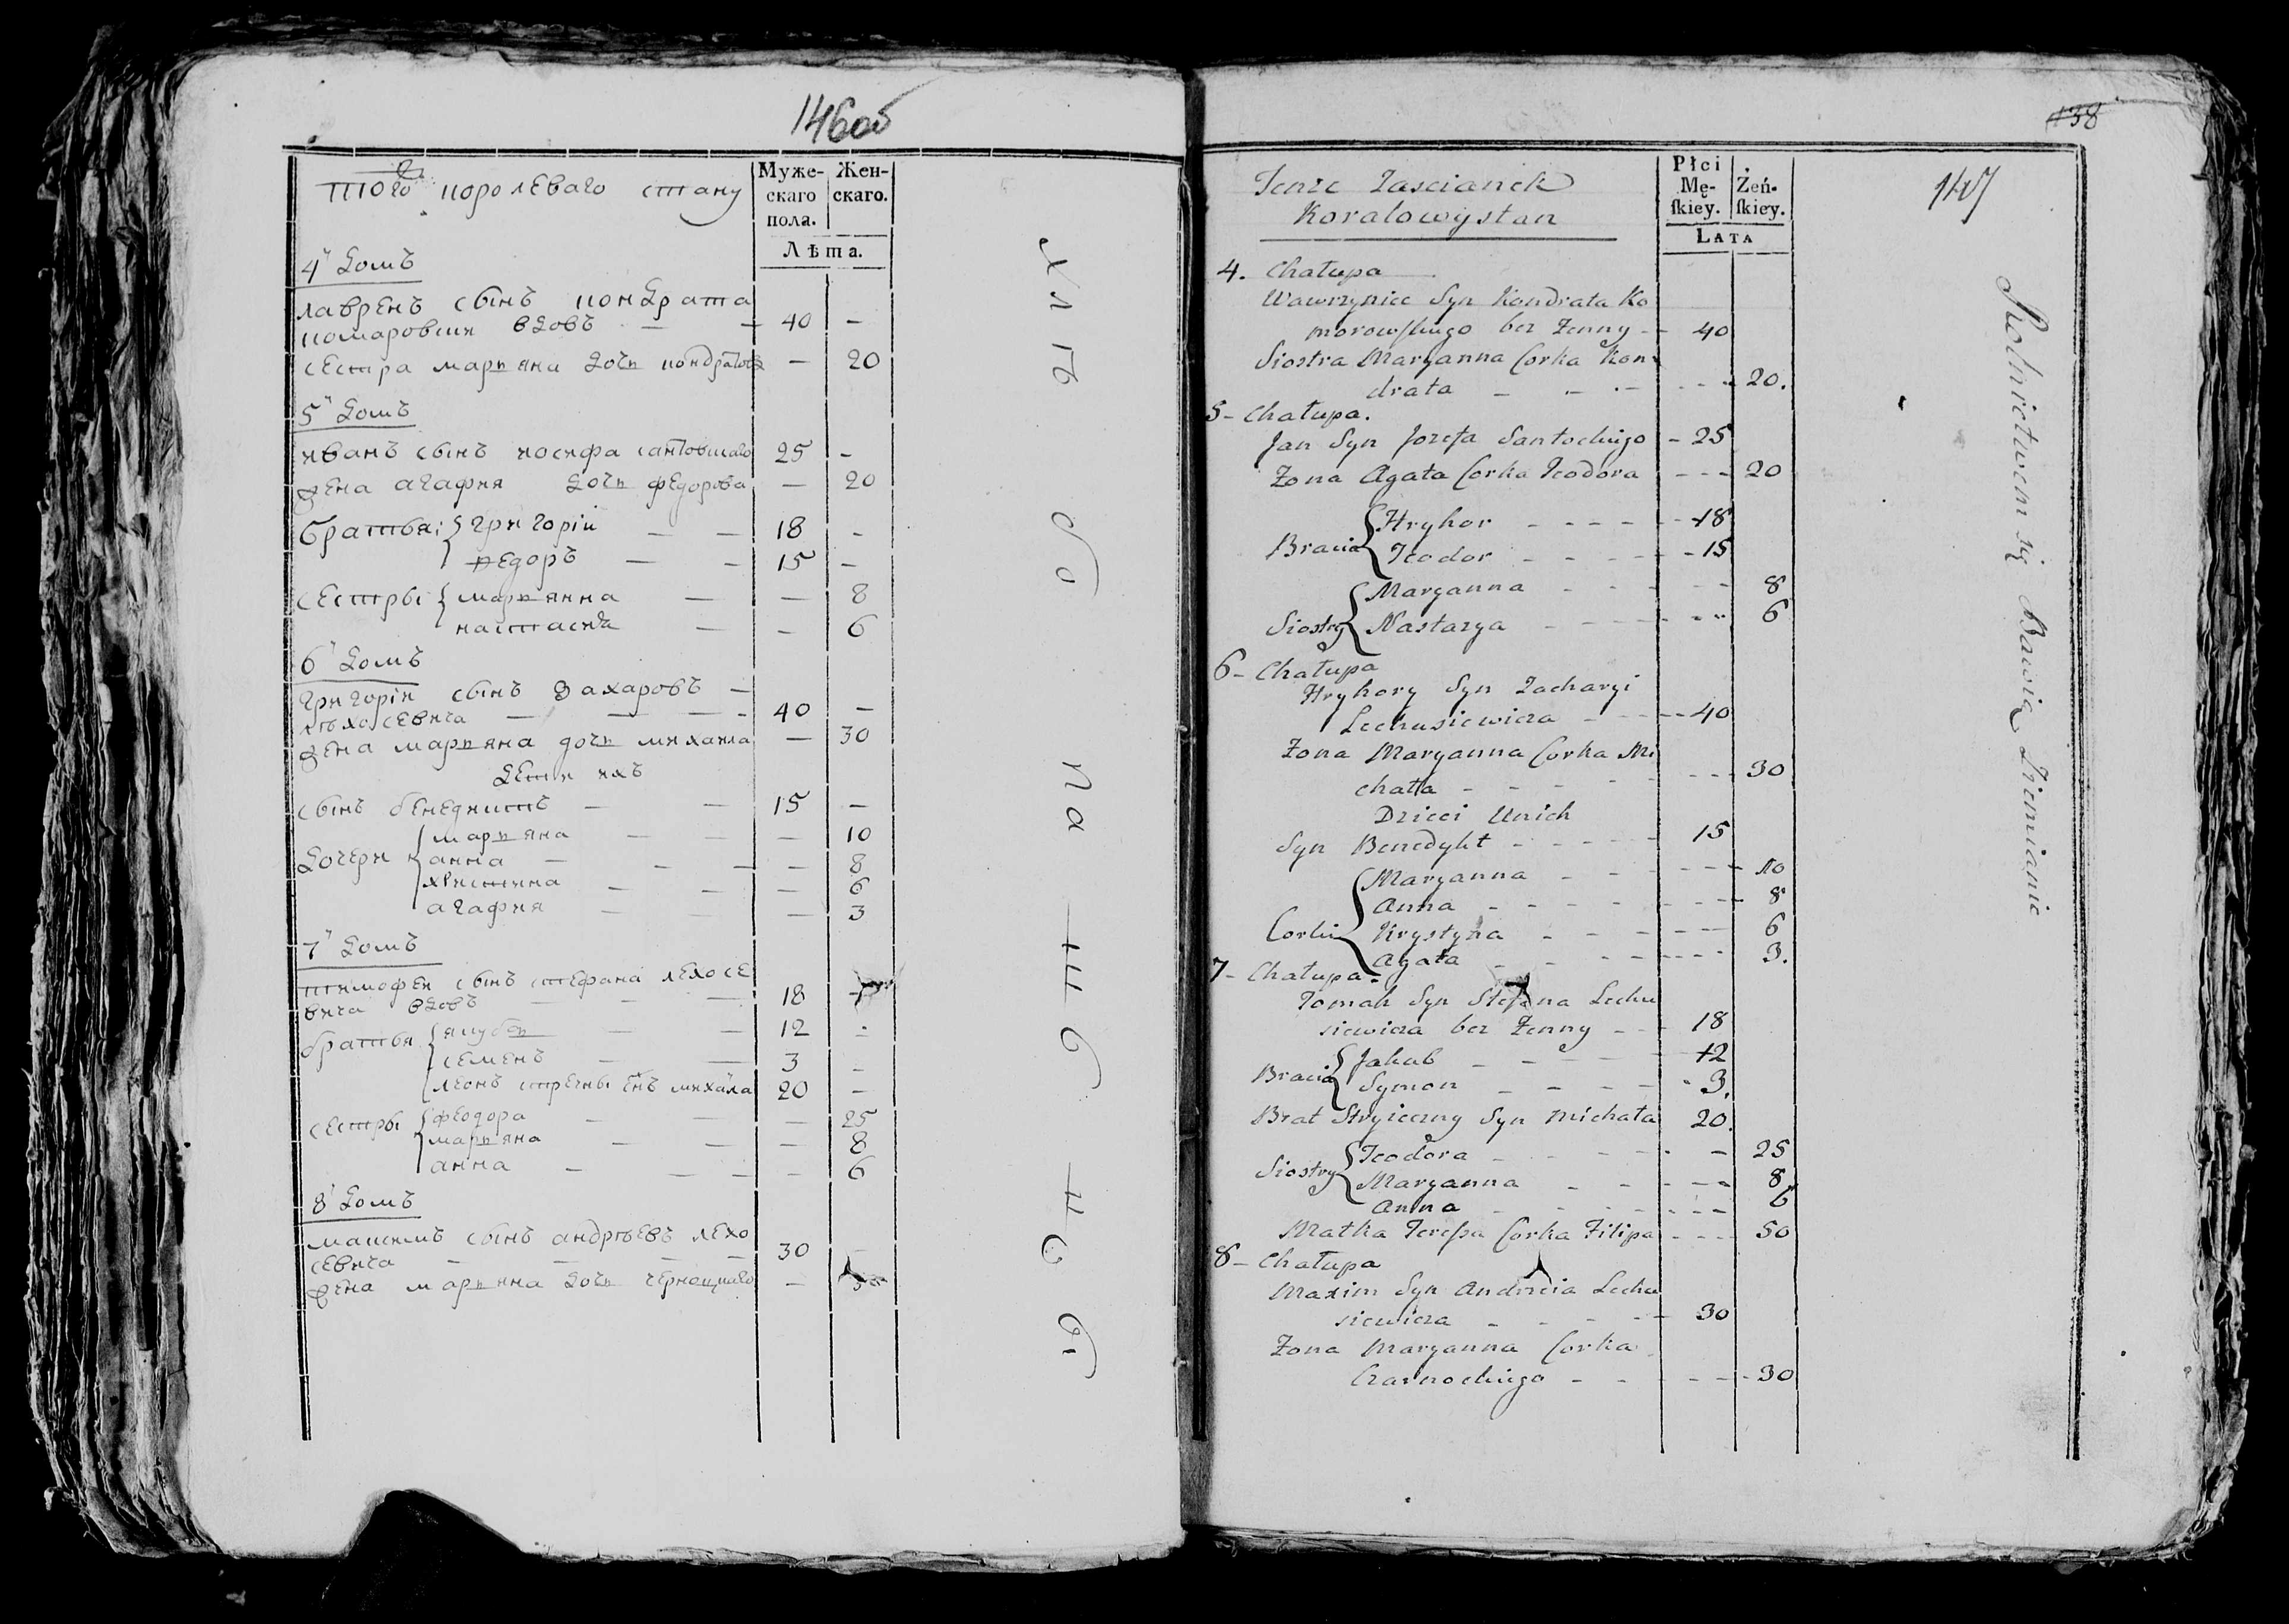 146об
того королеваго стану
Муже-
скаго
пола.
Жен-
скаго.
Лѣта.
4й домъ
лаврѣнъ сынъ кондрата
комаровски вдовъ — — 40 —
сестра марьяна дочь кондрата — 20
5й домъ
иванъ сынъ иосифа сантовскаго 25 —
жена агафия дочь федорова — 20
братья: григорій — — 18 -
федоръ — - 15 —
сестры марьянна — — 8
настасия — - 6
6й домъ
григорiи сынъ захаровъ —
лѣхосевича — — — - 40 —
жена марьяна дочь михаила — 30
дети ихъ
сынъ бенедиктъ — — 15 —
марьяна — — — 10
дочери анна — — — — 8
христина — — — 6
агафия — — 3
7й домъ
тимофеи сынъ стефана лехосе
вича вдовъ — — — 18 -
братья якубъ — — 12 -
семенъ — — 3 -
леонъ стречны снъ михаила 20 —
сестры феодора — — — 25
марьяна — — — 8
анна — — — - 6
8й домъ
максимъ сынъ андрѣевъ лехо
севича — — — — 30
жена марьяна дочь чернацкаго —
хлѣ
бо
па
ш
е
ст
138
147
Tenże Zascianek
Koralowystan
Płci
Mę-
ſkiey.
Żeń-
ſkiey.
Lata
4. Chałupa
Wawrzyniec Syn Kondrata Ko
morowſkiego bez Zenny - - 40
Siostra Maryanna Corka Kon-
drata - - - - - - 20.
5- Chałupa.
Jan Syn Jozefa Santockiego - 25
Zona Agata Corka Teodora - - - 20
Hryhor - - - - - - 18
Bracia Teodor - - - - - 15
Maryanna - - - - - 8
Siostry Nastazya - - - - - - 6
6- Chałupa
Hryhory Syn Zacharyi
Lechusiewicza - - - - - 40
Zona Maryanna Corka Mi
chała - - - - - - - 30
Dzieci Unich
Syn Benedykt - - - - - 15
Maryanna - - - - - - - 10
Anna - - - - - - - - 8
Corki Krystyna - - - - - - 6
Agata - - - - - - - - 3.
7- Chałupa.
Tomah Syn Stefana Lechu
siewicza bez Zenny - - - 18
Jakub - - - - - 12
Bracia Symon - - - - - 3.
Brat Stryieczny Syn Michała 20.
Teodora - - - - - - - 25
Siostry Maryanna - - - - - - 8
Anna - - - - - - - 6
Matka Tereſsa Corka Filipa - - - 50
8- Chałupa
Maxim Syn Andrzeia Lechu
siewicza - - - - - 30
Zona Maryanna Corka
Czarnockiego - - - - - 30
Rolnictwem się Bawią Ziemianie